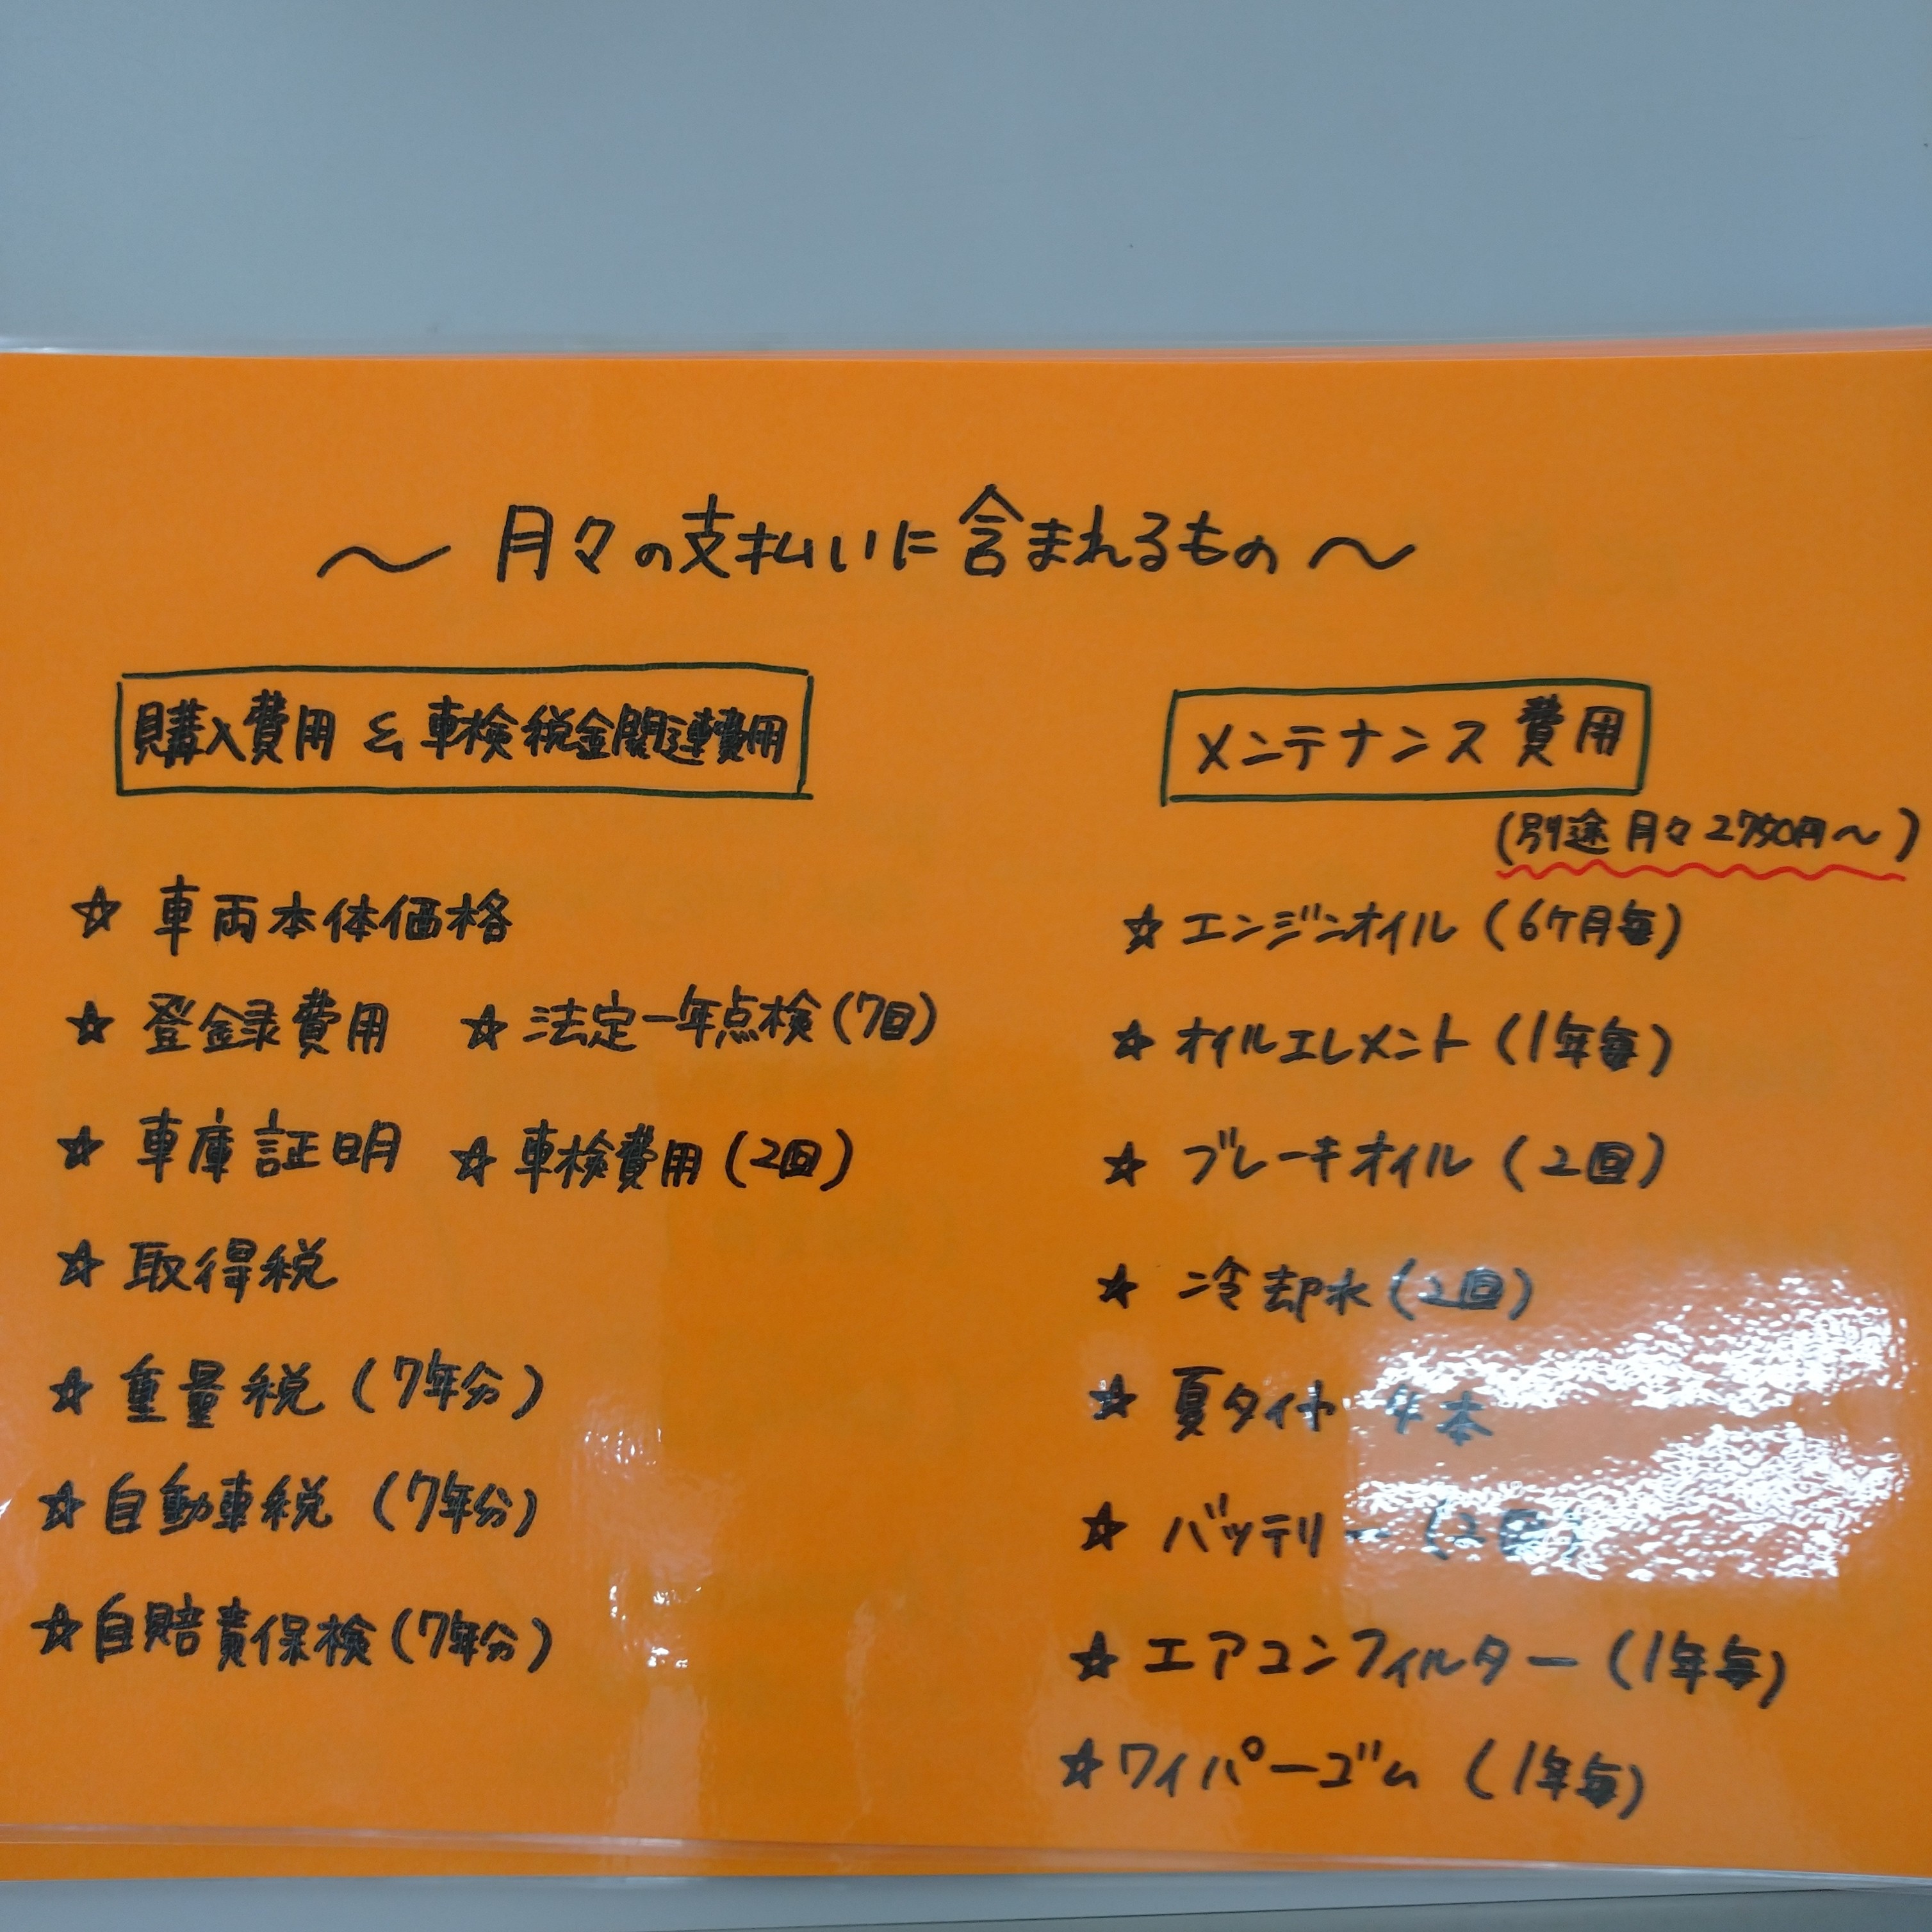 〜 月々の支払いに含まれるもの 〜
購入費用 & 車検税金関連費用
☆ 車両本体価格
☆ 登録費用 ☆ 法定一年点検(7回)
☆ 車庫証明 ☆ 車検費用(2回)
☆ 取得税
☆ 重量税(7年分)
☆ 自動車税(7年分)
☆ 自賠責保検(7年分)
メンテナンス費用
(別途月々2750円〜)
☆ エンジンオイル(6ヶ月毎)
☆ オイルエレメント(1年毎)
☆ ブレーキオイル(2回)
☆ 冷却水(2回)
☆ 夏タイヤ 4本
☆ バッテリー(2回)
☆ エアコンフィルター(1年毎)
☆ ワイパーゴム(1年毎)